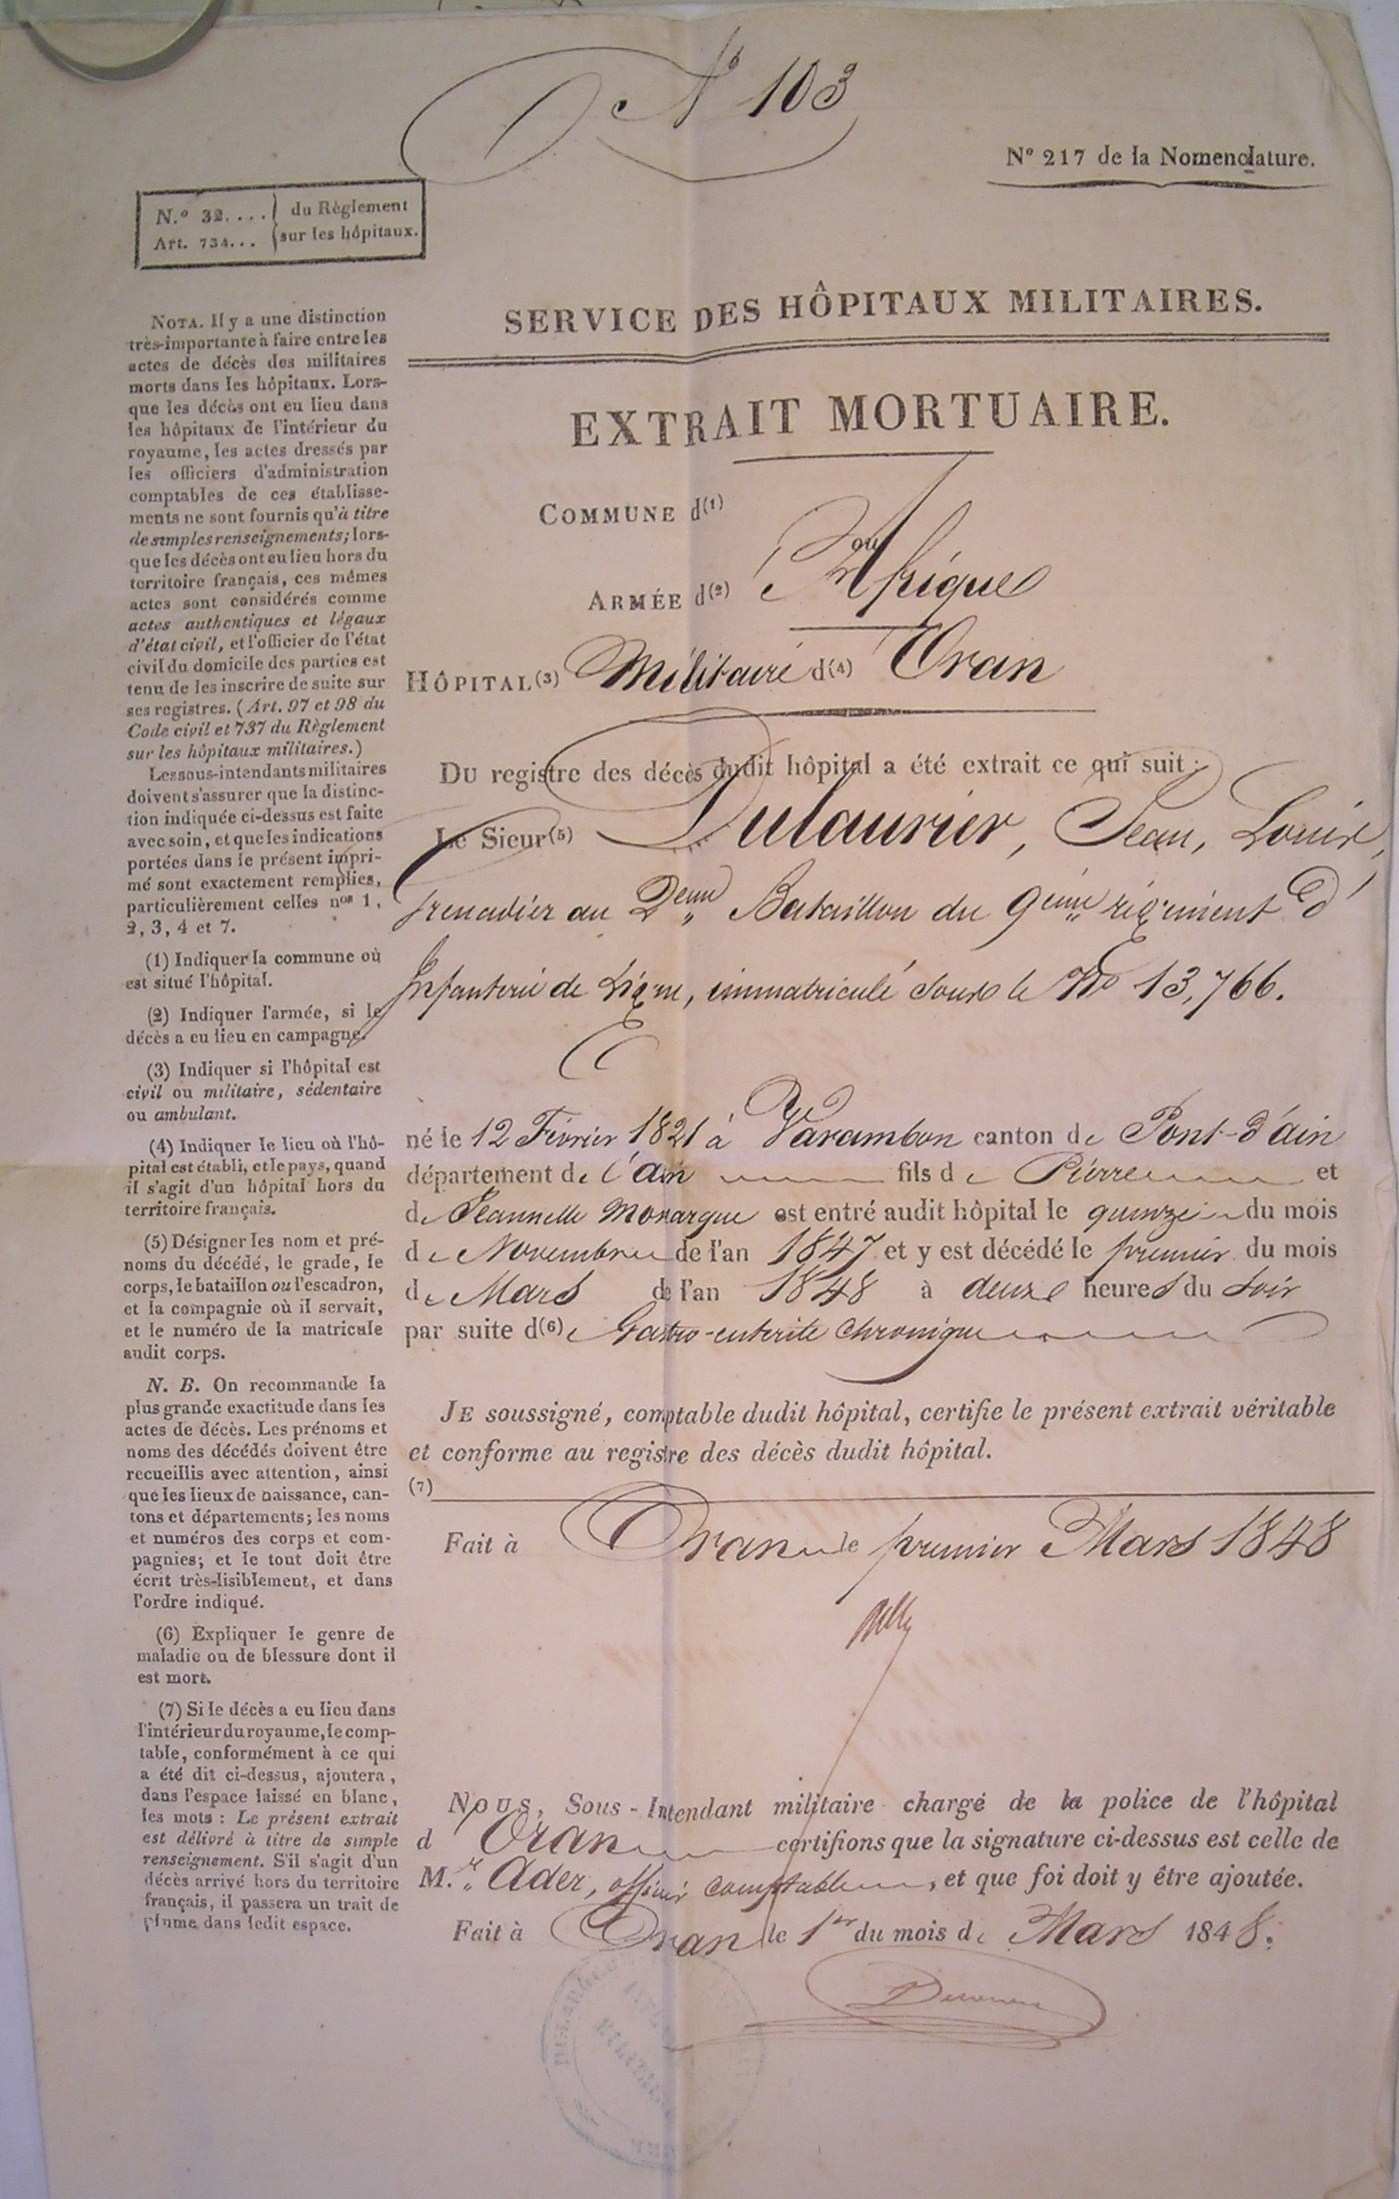 N° 103
N° 217 de la Nomenclature.
N.° 32.... du Règlement
Art. 734... sur les hôpitaux.
SERVICE DES HÔPITAUX MILITAIRES.
EXTRAIT MORTUAIRE.
COMMUNE d(1)
ou
ARMÉE d(2) 'Afrique
HÔPITAL(3) Militaire d(4) Oran
DU registre des décès dudit hôpital a été extrait ce qui suit :
Le Sieur(5) Dulaurier, Jean, Louis,
grenadier au 2eme Bataillon du 9eme régiment d'
Infanterie de Ligne, immatriculé sous le No 13,766.
né le 12 Février 1821 à Varambon canton de Pont-d'ain
département de l'ain fils de Pierre et
de Jeannette Monarque est entré audit hôpital le quinze du mois
de Novembre de l'an 1847 et y est décédé le premier du mois
de Mars de l'an 1848 à deux heures du soir
par suite d(6)e Gastro-enterite chronique
JE soussigné, comptable dudit hôpital, certifie le présent extrait véritable
et conforme au registre des décès dudit hôpital.
(7)
Fait à Oran le premier Mars 1848
NOUS, Sous-Intendant militaire chargé de la police de l'hôpital
d'Oran certifions que la signature ci-dessus est celle de
M.r Ader, officier comptable, et que foi doit y être ajoutée.
Fait à Oran le 1er du mois de Mars 1848.
NOTA. Il y a une distinction
très-importante à faire entre les
actes de décès des militaires
morts dans les hôpitaux. Lors-
que les décès ont eu lieu dans
les hôpitaux de l'intérieur du
royaume, les actes dressés par
les officiers d'administration
comptables de ces établisse-
ments ne sont fournis qu'à titre
de simples renseignements; lors-
que les décès ont eu lieu hors du
territoire français, ces mêmes
actes sont considérés comme
actes authentiques et légaux
d'état civil, et l'officier de l'état
civil du domicile des parties est
tenu de les inscrire de suite sur
ses registres. (Art. 97 et 98 du
Code civil et 737 du Règlement
sur les hôpitaux militaires.)
Les sous-intendants militaires
doivent s'assurer que la distinc-
tion indiquée ci-dessus est faite
avec soin, et que les indications
portées dans le présent impri-
mé sont exactement remplies,
particulièrement celles nos 1,
2, 3, 4 et 7.
(1) Indiquer la commune où
est situé l'hôpital.
(2) Indiquer l'armée, si le
décès a eu lieu en campagne.
(3) Indiquer si l'hôpital est
civil ou militaire, sédentaire
ou ambulant.
(4) Indiquer le lieu où l'hô-
pital est établi, et le pays, quand
il s'agit d'un hôpital hors du
territoire français.
(5) Désigner les nom et pré-
noms du décédé, le grade, le
corps, le bataillon ou l'escadron,
et la compagnie où il servait,
et le numéro de la matricule
audit corps.
N. B. On recommande la
plus grande exactitude dans les
actes de décès. Les prénoms et
noms des décédés doivent être
recueillis avec attention, ainsi
que les lieux de naissance, can-
tons et départements; les noms
et numéros des corps et com-
pagnies; et le tout doit être
écrit très-lisiblement, et dans
l'ordre indiqué.
(6) Expliquer le genre de
maladie ou de blessure dont il
est mort.
(7) Si le décès a eu lieu dans
l'intérieur du royaume, le comp-
table, conformément à ce qui
a été dit ci-dessus, ajoutera,
dans l'espace laissé en blanc,
les mots : Le présent extrait
est délivré à titre de simple
renseignement. S'il s'agit d'un
décès arrivé hors du territoire
français, il passera un trait de
plume dans ledit espace.